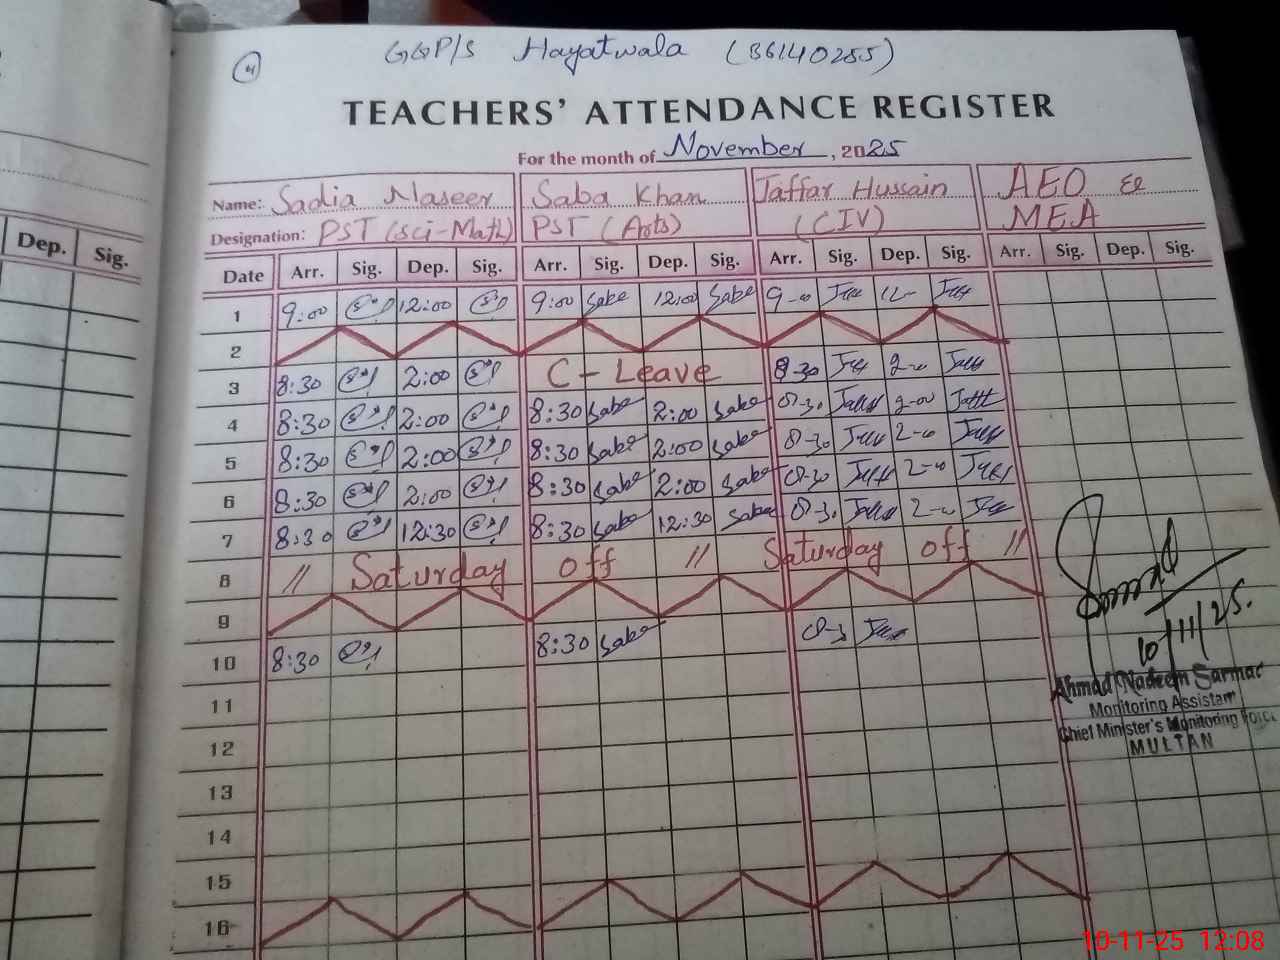 4
GGP/S Hayatwala (36140255)
TEACHERS' ATTENDANCE REGISTER
For the month of November, 2025
Name: Sadia Naseer Saba Khan Jaffar Hussain AEO
Designation: PST (Sci-Math) PST (Arts) (CIV) MEA
Dep. Sig.
Date Arr. Sig. Dep. Sig. Arr. Sig. Dep. Sig. Arr. Sig. Dep. Sig. Arr. Sig. Dep. Sig.
1 9:00 12:00 9:00 Saba 12:00 Saba 9-00 12-
2
3 8:30 2:00 C - Leave 8-30 2-00
4 8:30 2:00 8:30 Saba 2:00 Saba 8-30 2-00
5 8:30 2:00 8:30 Saba 2:00 Saba 8-30 2-00
6 8:30 2:00 8:30 Saba 2:00 Saba 8-30 2-00
7 8:30 12:30 8:30 Saba 12:30 Saba 8-30 2-00
8 // Saturday off // Saturday off //
9
10 8:30 8:30 Saba 8-3
10/11/25.
11
Ahmad Nadeem Sarmad
Monitoring Assistant
12
Chief Minister's Monitoring Force
MULTAN
13
14
15
16
10-11-25 12:08